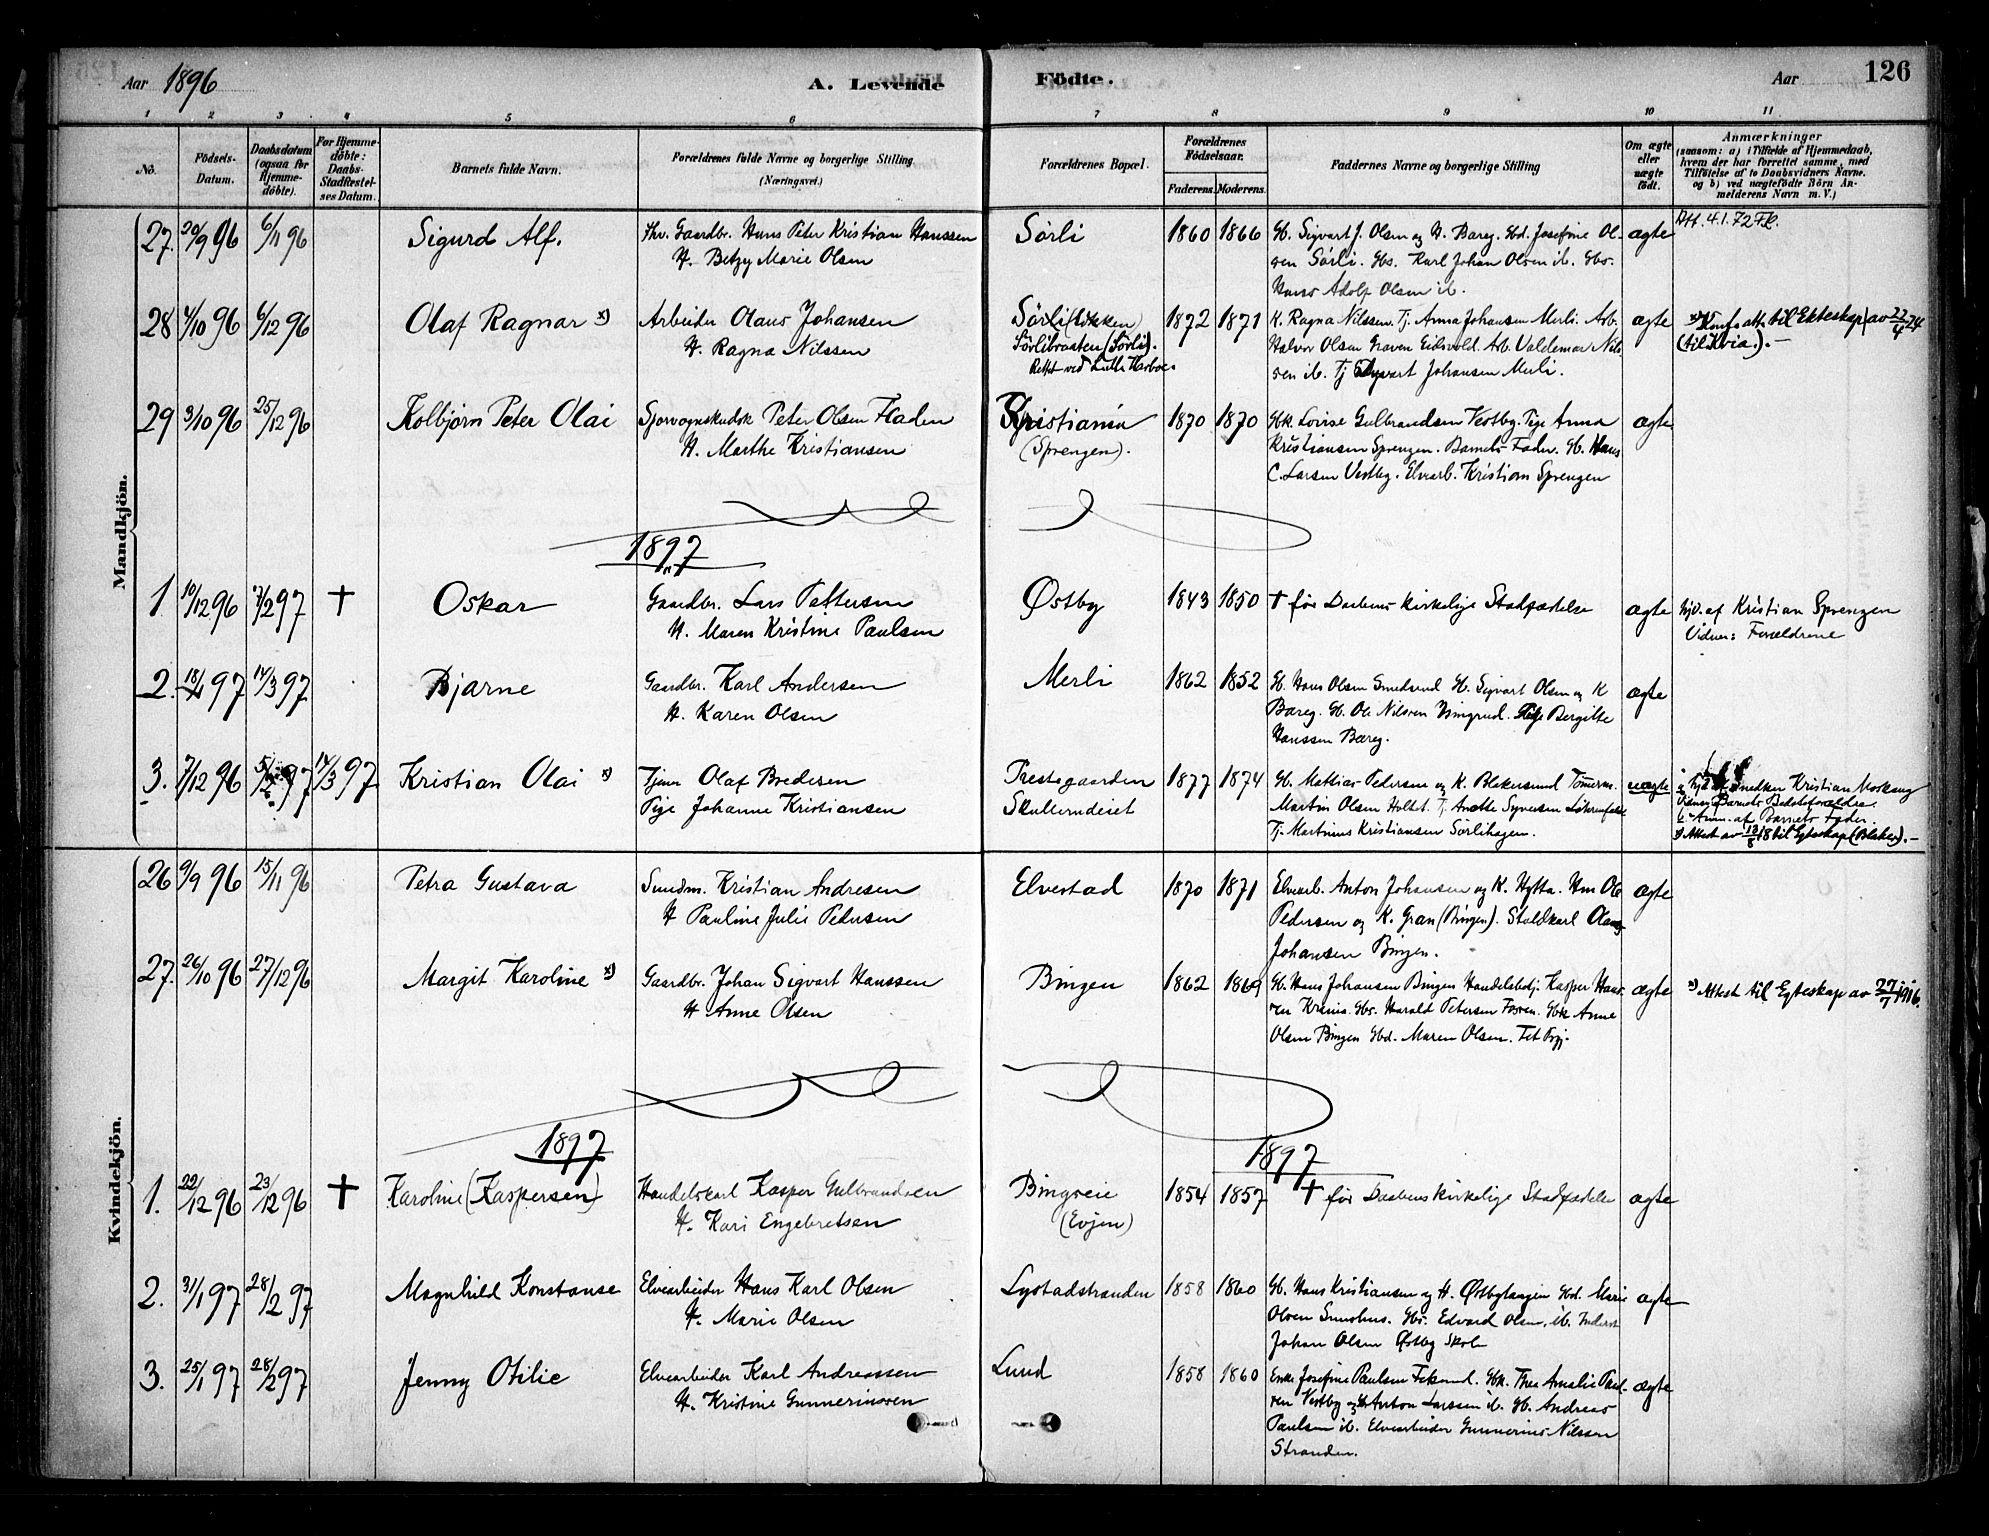 Aar 1896
A. Levende
Födte.
Aar
126
1 2 3 4 5 6 7 8 9 10 11
No.
Födsels-Datum.
Daabsdatum (ogsaa for Hjemmedöbte).
For Hjemmedöbte: Daabs-Stadfæstelses Datum.
Barnets fulde Navn.
Forældrenes fulde Navne og borgerlige Stilling (Næringsvei.)
Forældrenes Bopæl.
Forældrenes Födselsaar.
Faderens. Moderens.
Faddernes Navne og borgerlige Stilling
Om ægte eller uægte födt.
Anmærkninger
(saasom: a) i Tilfælde af Hjemmedaab, hvem der har forrettet samme, med Tilföielse af to Daabsvidners Navne, og b) ved uægtefödte Börn Anmelderens Navn m. V.)
Mandkjön.
27. 20/9 96 6/11 96 Sigurd Alf. Gaardbr. Hans Peter Kristian Hanssen Sörli 1860 1866 Gb. Sigvart J. Olsen og H. Bareg. Gbd. Josefine Ol- ægte Att. 4.1.72
H. Betzy Marie Olsen
sen Sørli. Gbs. Karl Johan Olsen ib. Gbs.
Hans Adolf Olsen ib.
28 4/10 96 6/12 96 Olaf Ragnar x) Arbeider Olaus Johansen Sörli(løkken) 1872 1871 K. Ragna Nilssen. Tj. Anna Johansen Merli. Arb. ægte x) Konf. att. til Ekteskap av 22/4 24
H. Ragna Nilssen Sørlibraaten (Sørli).
Halvor Olsen Graven Eidsvold. Arb. Valdemar Nils (til Kria.). -
sen ib. Tj Johansen Merli.
29 3/10 96 25/12 96 Kolbjörn Peter Olai Sporvognskudsk Peter Olsen Fladen Kristiania 1870 1870 Gbk. Lovise Gulbrandsen Vestby. Pige Anna ægte
H. Marthe Kristiansen (Sprengen).
Kristiansen Sprengen. Barnets Fader. Gb. Hans
C. Larsen Vestby. Elvearb. Kristian Sprengen
1897
1 10/12 96 7/2 97 † Oskar Gaardbr. Lars Pettersen Østby 1843 1850 † før Daabens kirkelige Stadfæstelse ægte Hjd. af Kristian Sprengen
H. Maren Kristine Paulsen Vidner: Forældrene
2. 18/1 97 14/3 97 Bjarne Gaardbr. Karl Andersen Merli 1862 1852 Gb. Hans Olsen Smedsrud Gb. Sigvart Olsen og K ægte
H. Karen Olsen
Bareg. Gb. Ole Nilsen Pige Bergitte
Hanssen Bareg.
3. 7/12 96 14/3 97 Kristian Olai x) Tjener Olaf Bredesen Prestegaarden 1877 1874 Gb. Mathias Pedersen og K. Blekersund Tømerm. uægte Snedker Kristian
Pige Johanne Kristiansen Skullerudeiet
Martin Olsen Holdt. Tj. Anette Syversen
Tj. Martinus Kristiansen Sörlihagen.
Vidner Barnets Bedsteforældre.
Anm. af Barnets Fader.
x) Attest av 18 til Egteskap (Blaker). -
Kvindekjön.
26 9/9 96 15/11 96 Petra Gustava Sundm. Kristian Andresen Elvestad 1870 1871 Elvearb. Anton Johansen og K. Hytta. Hm Ole ægte
H Pauline Julie Pedersen
Pedersen og K. Gran (Bingen). Staldkarl Olaus
Johansen Bingen.
27. 26/10 96 27/12 96 Margit Karoline x) Gaardbr. Johan Sigvart Hanssen Bingen 1862 1869 Gb. Hans Johansen Bingen Handelsbetj. Kasper Hans- ægte x) Attest til Egteskap av 27/7 1916
H Anne Olsen
sen Krinis. Gbs. Harald Petersen Gbk Anne
Olsen Bingen Gbd. Maren Olsen.
1897
1897
1. 22/12 96 23/12 96 † Karoline (Kaspersen) Handelskarl Kasper Gulbrandsen Bingseie 1854 1857 † før Daabens kirkelige Stadfæstelse ægte
H. Kari Engebretsen (Evjen)
2. 31/1 97 28/2 97 Magnhild Konstanse Elvearbeider Hans Karl Olsen Lystadstranden 1858 1860 Gb. Hans Kristiansen og H. Østbytangen Gbd. Marie ægte
H. Marie Olsen
Olsen Gbs. Edvard Olsen, ib. Inderst
Johan Olsen Østby Skole
3. 25/1 97 28/2 97 Jenny Otilie Elvearbeider Karl Andreassen Lund 1858 1860 Enke Josefine Paulsen Gbk. Thea Amalie Paul- ægte
H. Kristine Gunneriussen
sen Vestby og Anton Larssen ib. Gb. Andreas
Paulsen ib. Elvearbeider Gunnerius Nilssen
Stranden.